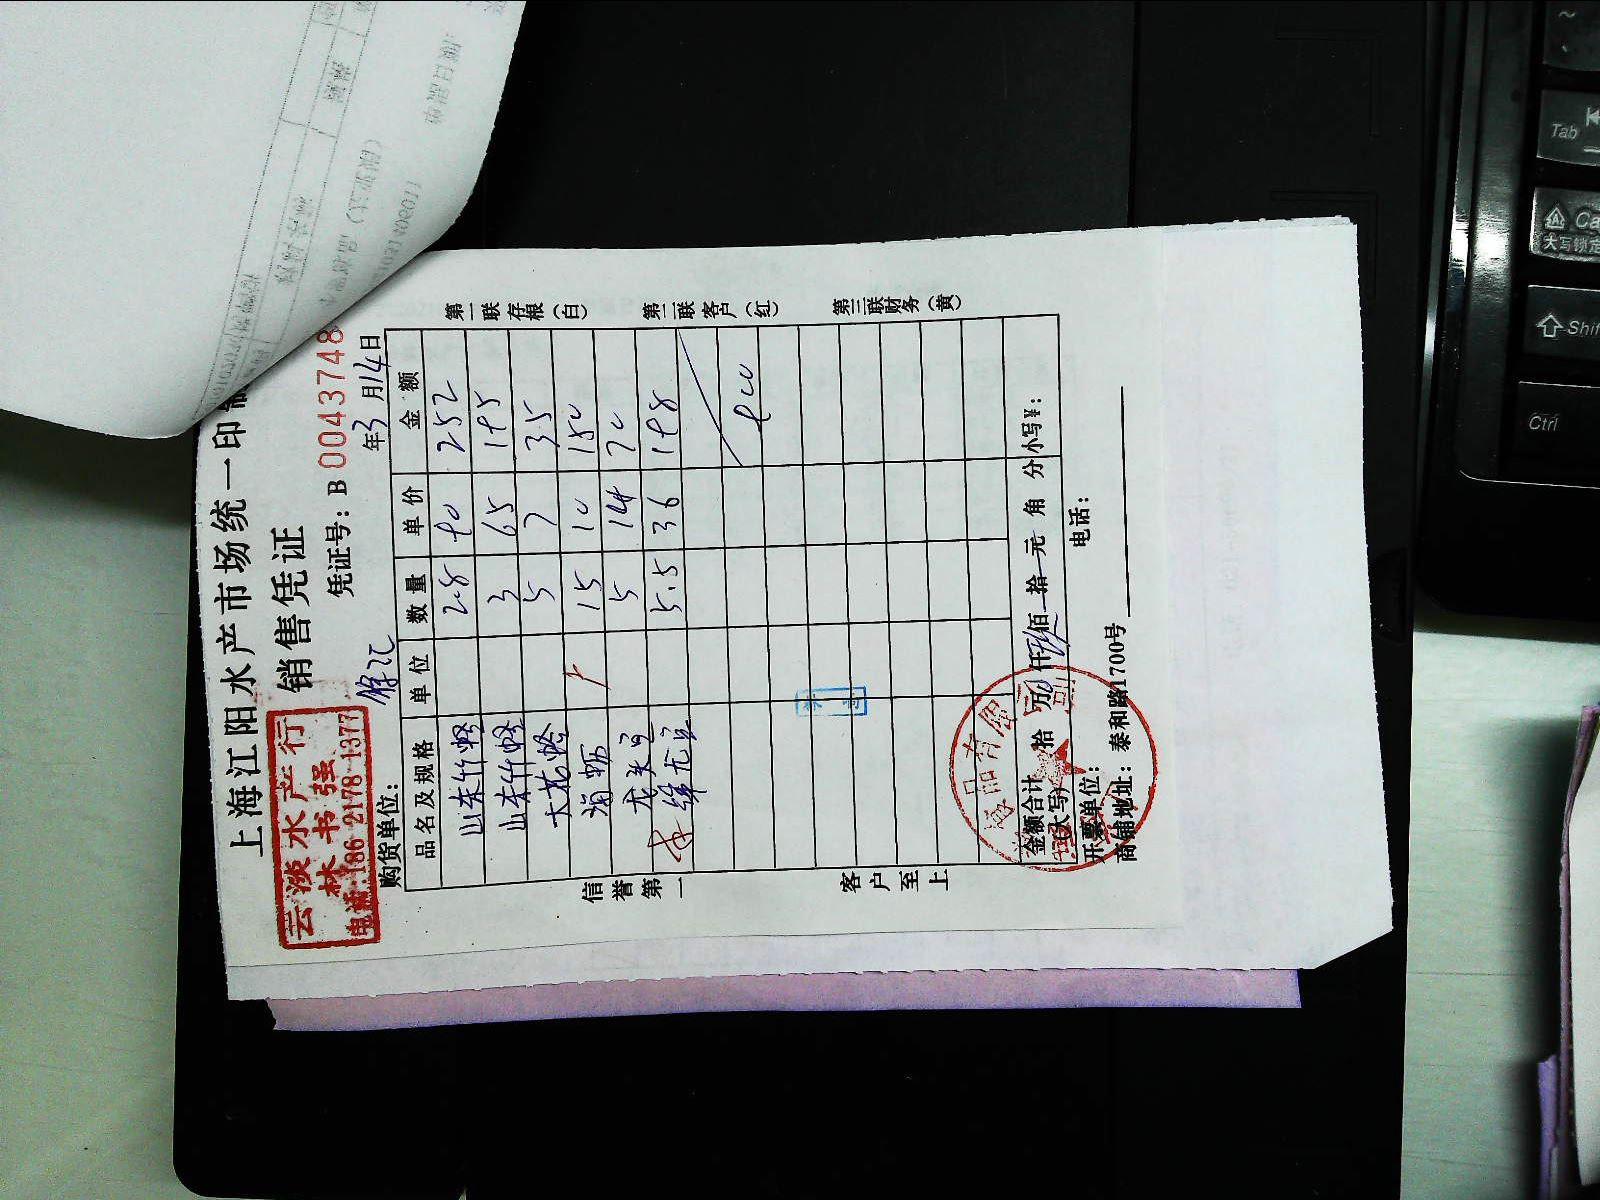 上海江阳水产市场统一印制
销售凭证
凭证号: B 0043748
云淡水产行
林书强
电话:186 2178 1377
购货单位:
年3月14日
品名及规格 单位 数量 单价 金额
山东竹蛏 2.8 90 252
山东竹蛏 3 65 195
大花蛤 5 7 35
海蛎 15 10 150
龙头 5 14 70
5.5 36 198
900
金额合计
(大写) 拾 万 仟 玖 佰 拾 元 角 分 小写¥:
开票单位: 电话:
商铺地址: 泰和路1700号
第一联存根(白)
第二联客户(红)
第三联财务(黄)
信誉第一
客户至上
Tab
大写锁定
Shif
Ctrl